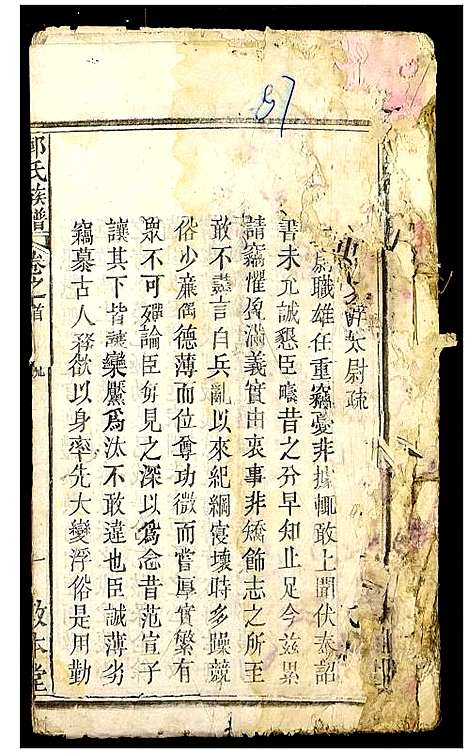 87
辭太尉疏
尉職雄任重竊憂非據輒敢上聞伏奉詔
書未允誠懇臣疇昔之分早知止足今茲累
請竊懼盈滿義實由衷事非矯飾志之所至
敢不盡言自兵亂以來紀綱寖壞時多躁競
俗少廉隅德薄而位尊功微而嘗厚實繁有
眾不可殫論臣每見之深以為念昔范宣子
讓其下皆讓欒黶為汰不敢違也臣誠薄劣
竊慕古人務欲以身率先大變浮俗是用勤
郭氏族譜
卷之首
一
敦本堂